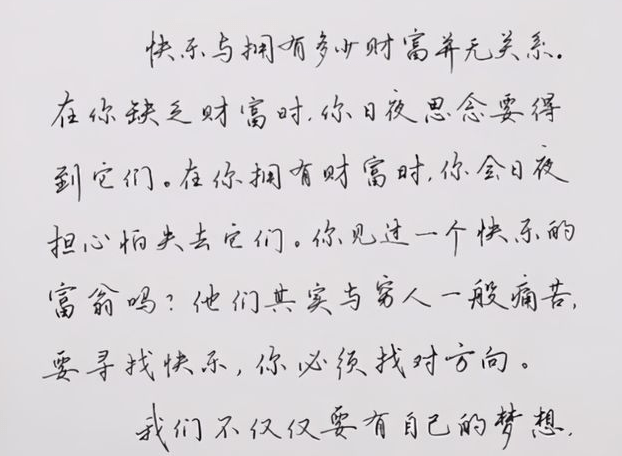 快乐与拥有多少财富并无关系.
在你缺乏财富时,你日夜思念要得
到它们。在你拥有财富时,你会日夜
担心怕失去它们。你见过一个快乐的
富翁吗?他们其实与穷人一般痛苦,
要寻找快乐,你必须找对方向。
我们不仅仅要有自己的梦想,